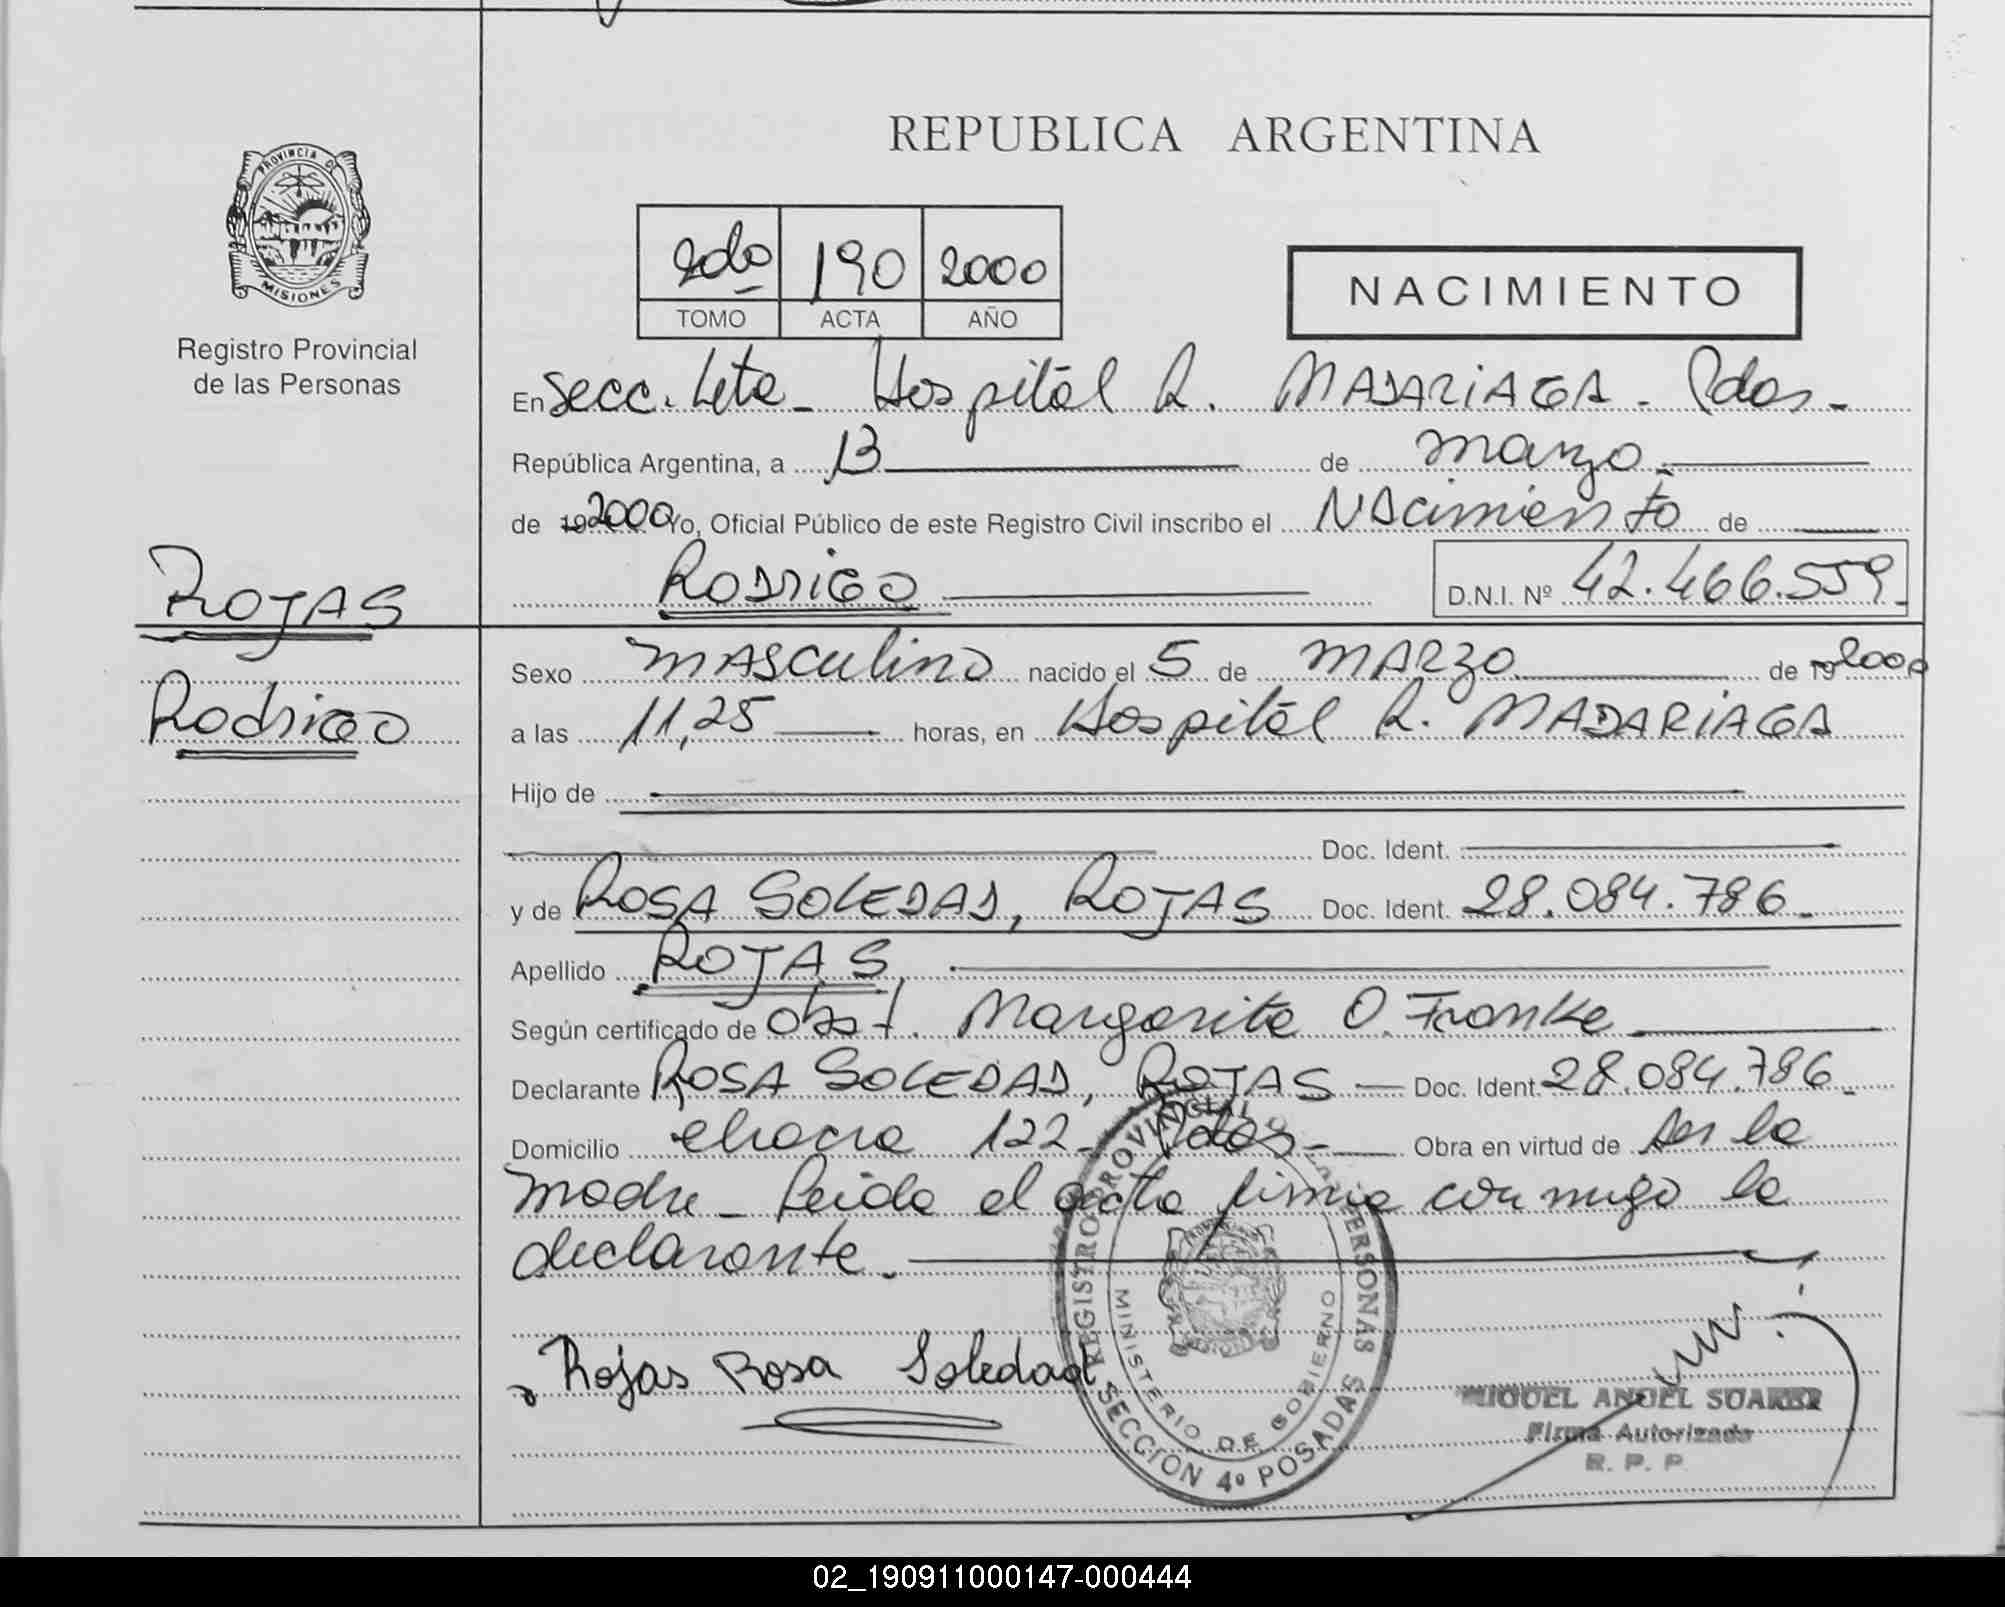 REPUBLICA ARGENTINA
PROVINCIA DE
MISIONES
Registro Provincial
de las Personas
2do 190 2000
TOMO ACTA AÑO
NACIMIENTO
En Secc. 4ta - Hospital R. MADARIAGA - Pdas -
República Argentina, a 13 de marzo
de 19 2000 Yo, Oficial Público de este Registro Civil inscribo el NAcimiento de
RODRIGO D.N.I. Nº 42.466.559
ROJAS
Rodrigo
Sexo MASCulino nacido el 5 de MARZO de 19 2000
a las 11,25 horas, en Hospital R. MADARIAGA
Hijo de
Doc. Ident.
y de ROSA SOLEDAD, ROJAS Doc. Ident. 28.084.786
Apellido ROJAS
Según certificado de Obst. Margarita O. Franke
Declarante ROSA SOLEDAD, ROJAS Doc. Ident. 28.084.786
Domicilio chacra 122 - Pdas - Obra en virtud de ser la
madre - Leida el acta firma con migo la
declarante.
Rojas Rosa Soledad
REGISTRO PROVINCIAL DE LAS PERSONAS
MINISTERIO DE GOBIERNO
SECCION 4º POSADAS
MIGUEL ANGEL SUAREZ
Firma Autorizada
R. P. P
02_190911000147-000444